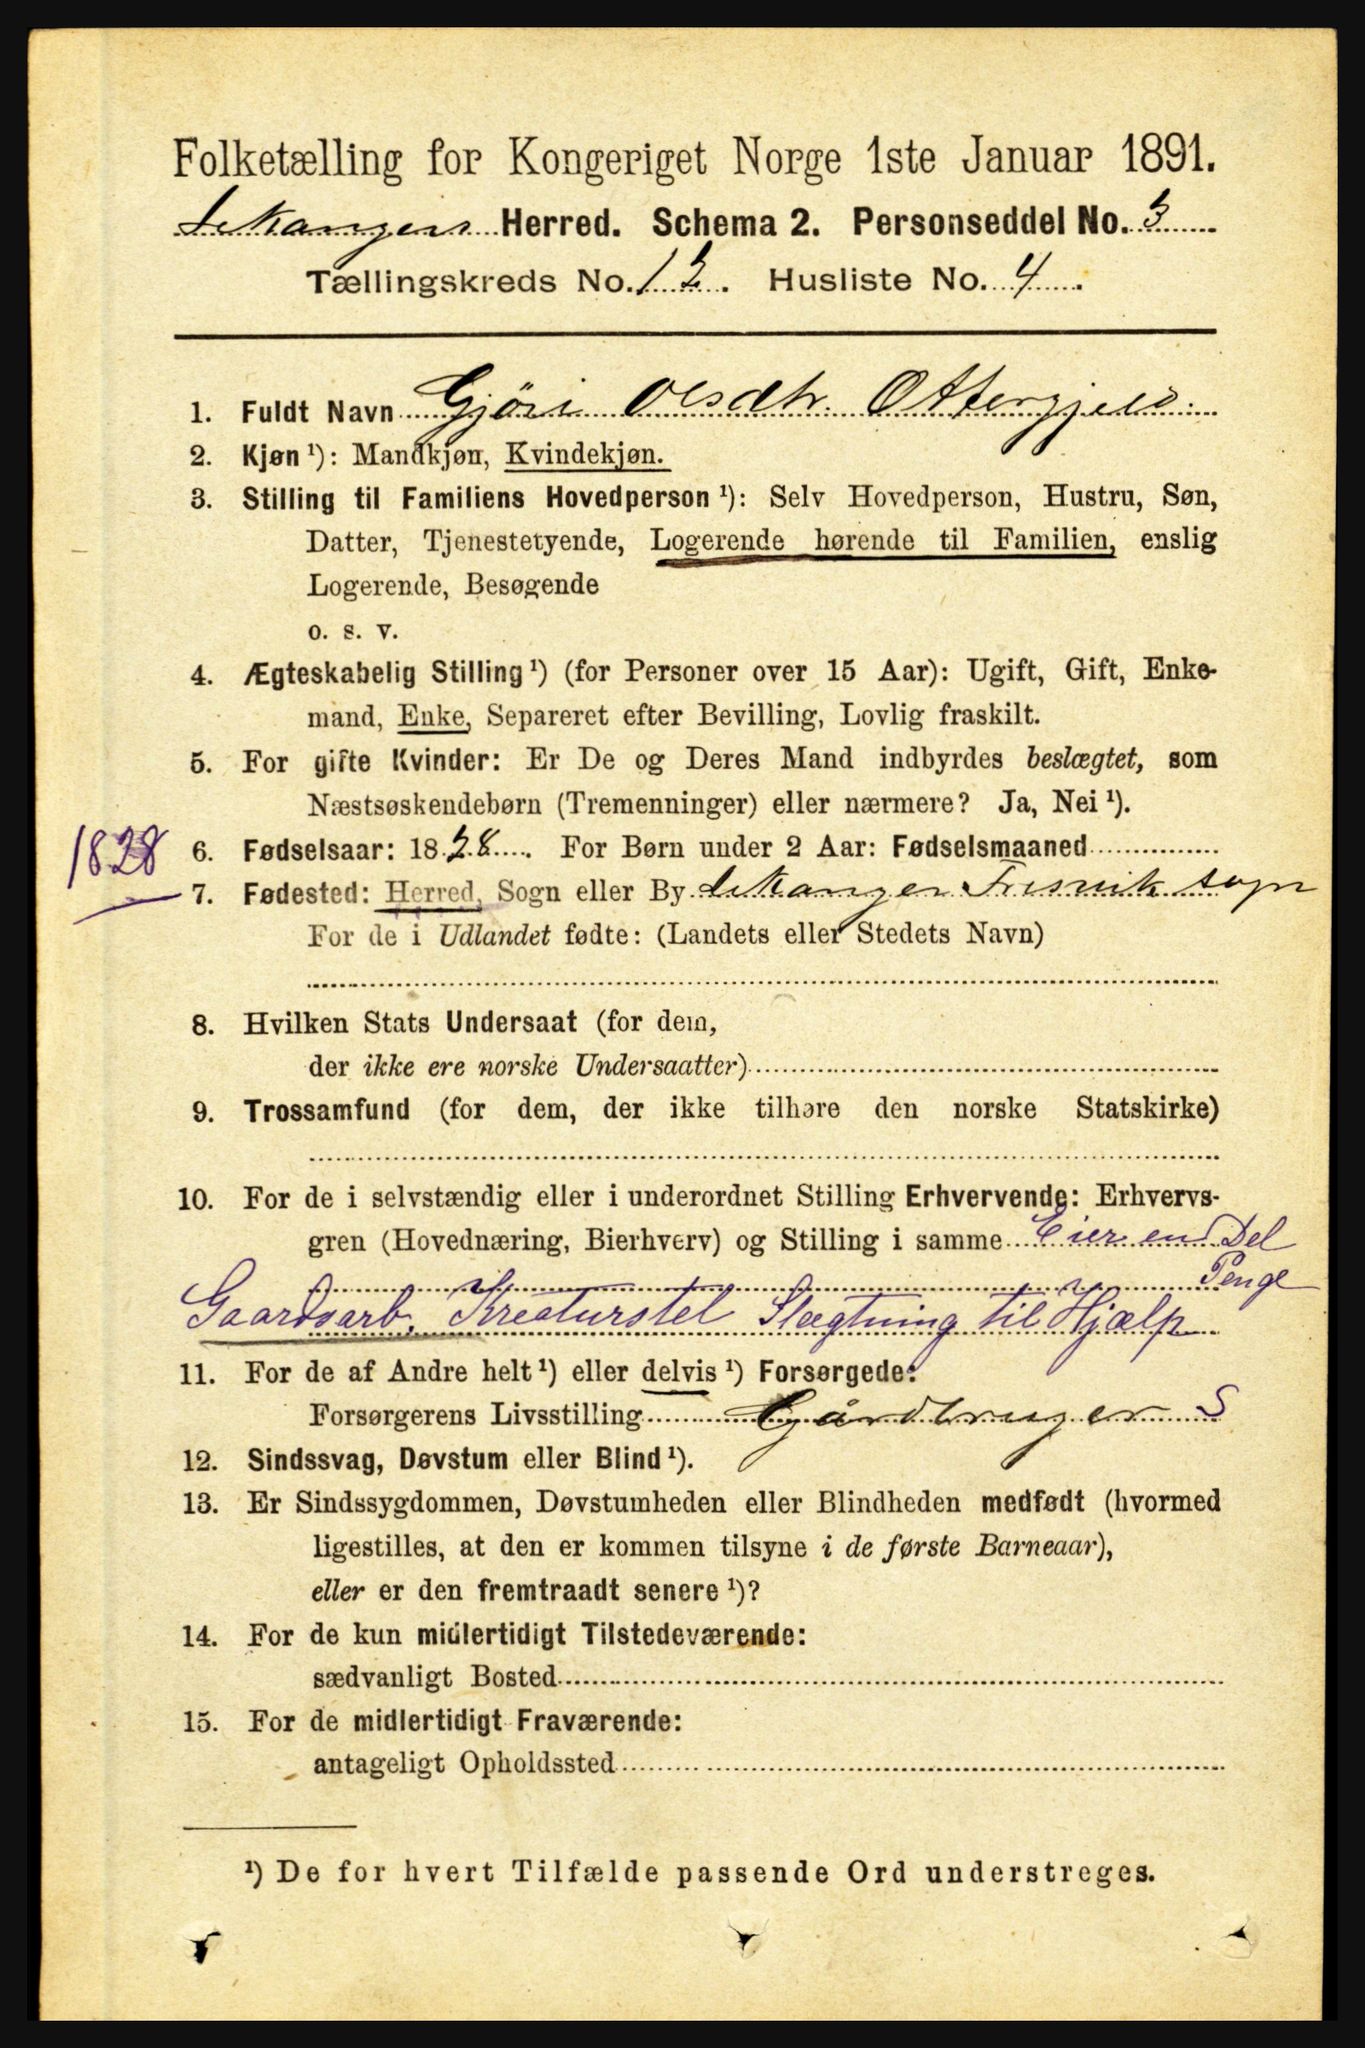 Folketælling for Kongeriget Norge 1ste Januar 1891.
Lekanger Herred. Schema 2. Personseddel No. 3
Tællingskreds No. 12. Husliste No. 4.
1. Fuldt Navn Gjöri Olsdtr.
2. Kjøn ¹): Mandkjøn, Kvindekjøn.
3. Stilling til Familiens Hovedperson ¹): Selv Hovedperson, Hustru, Søn,
Datter, Tjenestetyende, Logerende hørende til Familien, enslig
Logerende, Besøgende
o. s. v.
4. Ægteskabelig Stilling ¹) (for Personer over 15 Aar): Ugift, Gift, Enke-
mand, Enke, Separeret efter Bevilling, Lovlig fraskilt.
5. For gifte Kvinder: Er De og Deres Mand indbyrdes beslægtet, som
Næstsøskendebørn (Tremenninger) eller nærmere? Ja, Nei ¹).
1828
6. Fødselsaar: 1828. For Børn under 2 Aar: Fødselsmaaned
7. Fødested: Herred, Sogn eller By Lekanger Fresvik sogn
For de i Udlandet fødte: (Landets eller Stedets Navn)
8. Hvilken Stats Undersaat (for dem,
der ikke ere norske Undersaatter)
9. Trossamfund (for dem, der ikke tilhøre den norske Statskirke)
10. For de i selvstændig eller i underordnet Stilling Erhvervende: Erhvervs-
gren (Hovednæring, Bierhverv) og Stilling i samme Eier en Del
Penge
Gaardsarb. Kreaturstel Slægtning til Hjælp
11. For de af Andre helt ¹) eller delvis ¹) Forsørgede:
Forsørgerens Livsstilling Gårdbruger S
12. Sindssvag, Døvstum eller Blind ¹).
13. Er Sindssygdommen, Døvstumheden eller Blindheden medfødt (hvormed
ligestilles, at den er kommen tilsyne i de første Barneaar),
eller er den fremtraadt senere ¹)?
14. For de kun midlertidigt Tilstedeværende:
sædvanligt Bosted
15. For de midlertidigt Fraværende:
antageligt Opholdssted
¹) De for hvert Tilfælde passende Ord understreges.